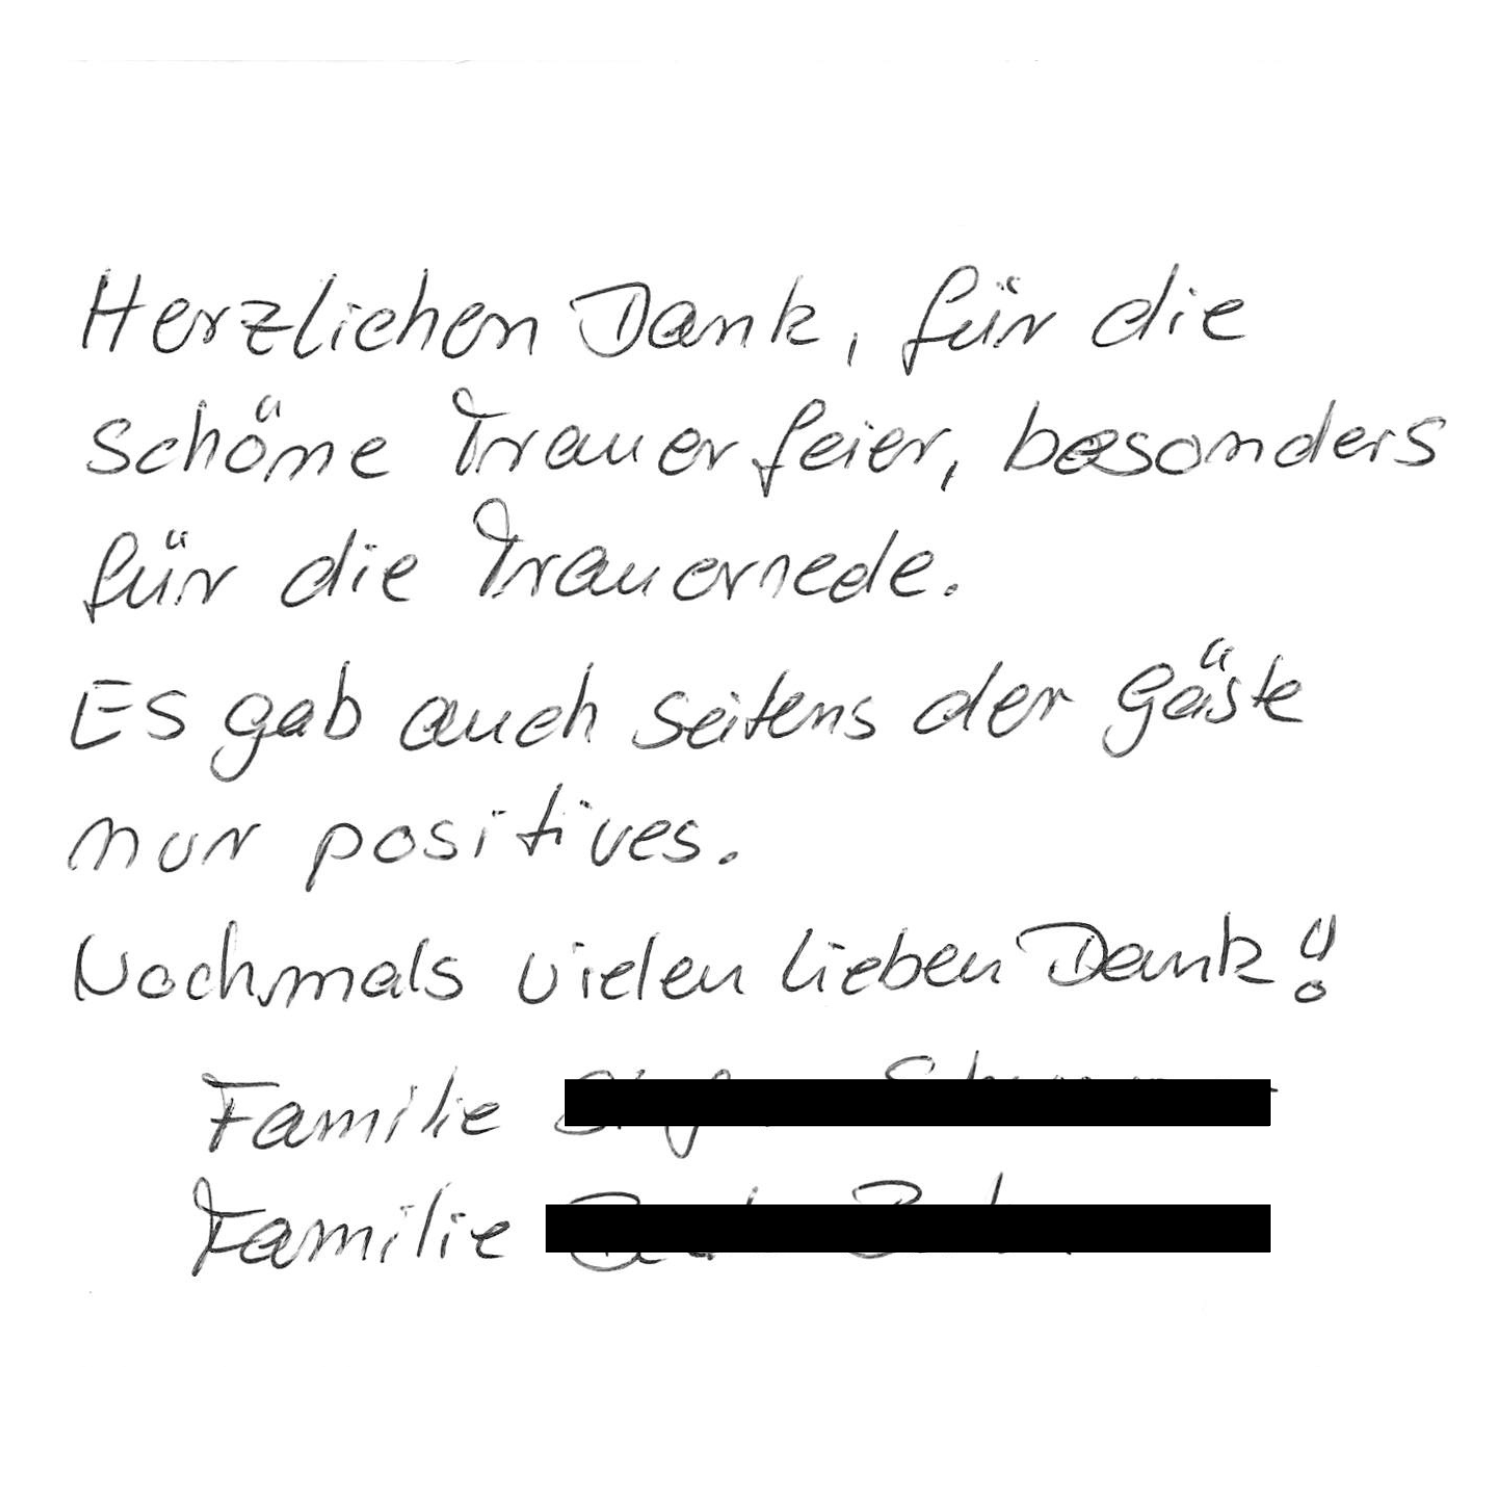 Herzlichen Dank, für die
schöne Trauerfeier, besonders
für die Trauerrede.
Es gab auch seitens der Gäste
nur positives.
Nochmals vielen lieben Dank!
Familie
Familie